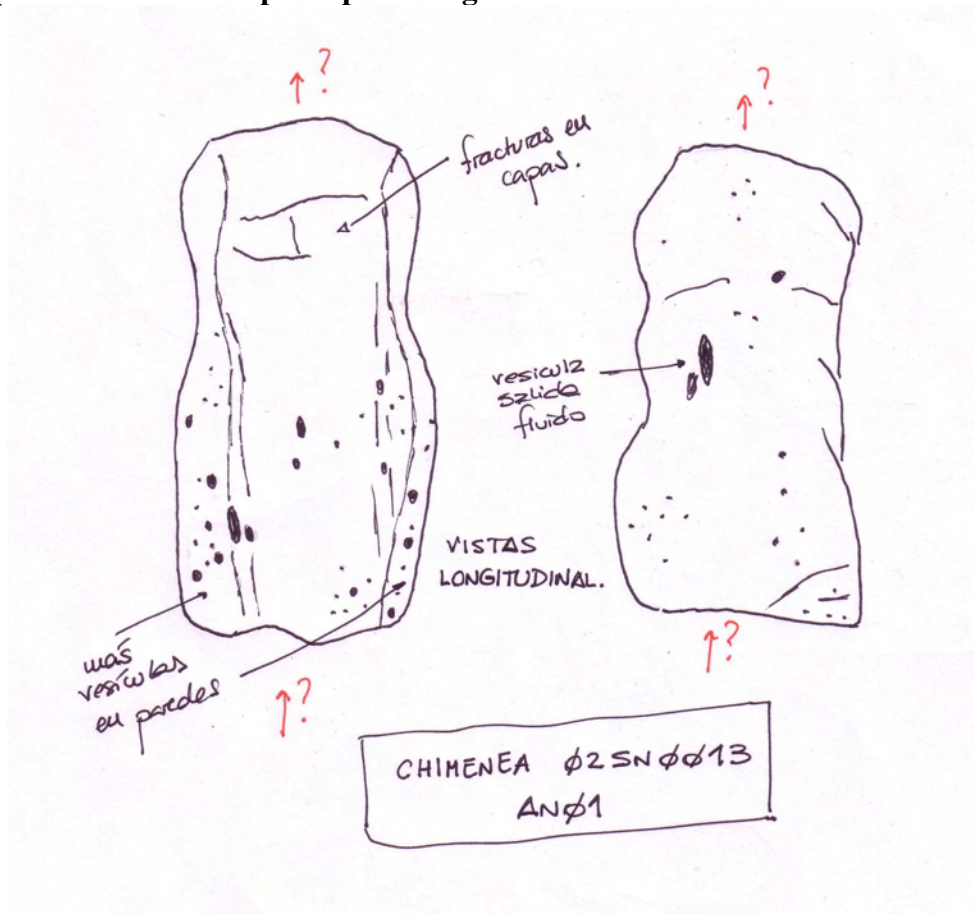 ↑?
↑?
fracturas en
capas.
vesicula
salida
fluido
VISTAS
LONGITUDINAL.
más
vesículas
en paredes
↑?
↑?
CHIMENEA Ø2SNØØ13
ANØ1